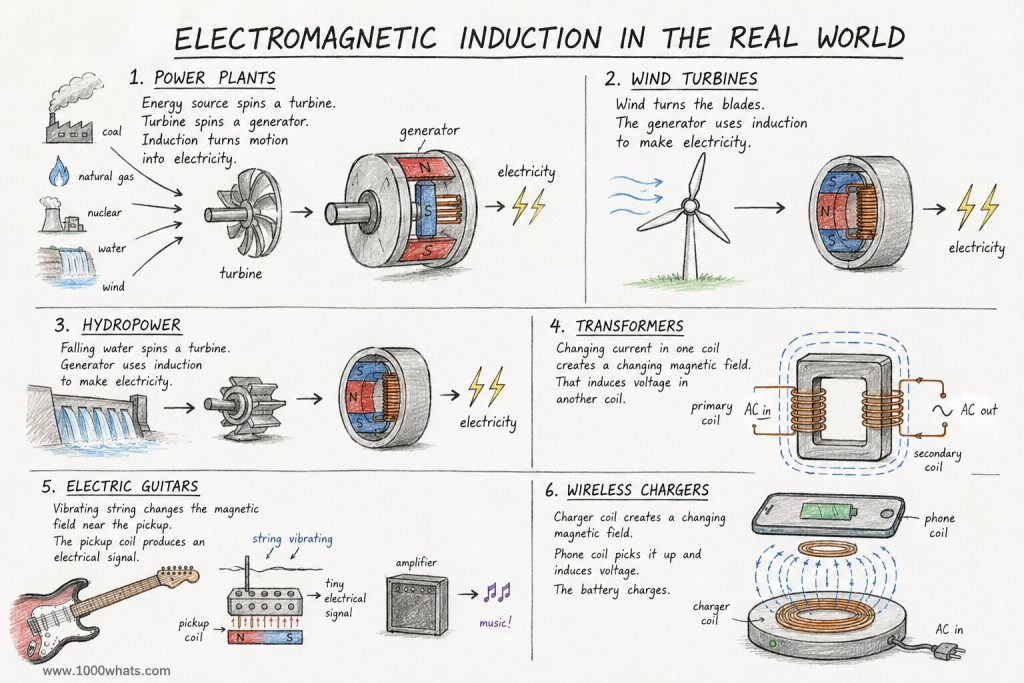 ELECTROMAGNETIC INDUCTION IN THE REAL WORLD
1. POWER PLANTS
Energy source spins a turbine.
Turbine spins a generator.
Induction turns motion
into electricity.
coal
natural gas
nuclear
water
wind
turbine
generator
N
S
S
electricity
2. WIND TURBINES
Wind turns the blades.
The generator uses induction
to make electricity.
S
N
S
electricity
3. HYDROPOWER
Falling water spins a turbine.
Generator uses induction
to make electricity.
S
N
S
electricity
4. TRANSFORMERS
Changing current in one coil
creates a changing magnetic field.
That induces voltage in
another coil.
primary
coil
AC in
AC out
secondary
coil
5. ELECTRIC GUITARS
Vibrating string changes the magnetic
field near the pickup.
The pickup coil produces an
electrical signal.
string vibrating
tiny
electrical
signal
pickup
coil
N S
amplifier
music!
6. WIRELESS CHARGERS
Charger coil creates a changing
magnetic field.
Phone coil picks it up and
induces voltage.
The battery charges.
phone
coil
charger
coil
AC in
www.1000whats.com